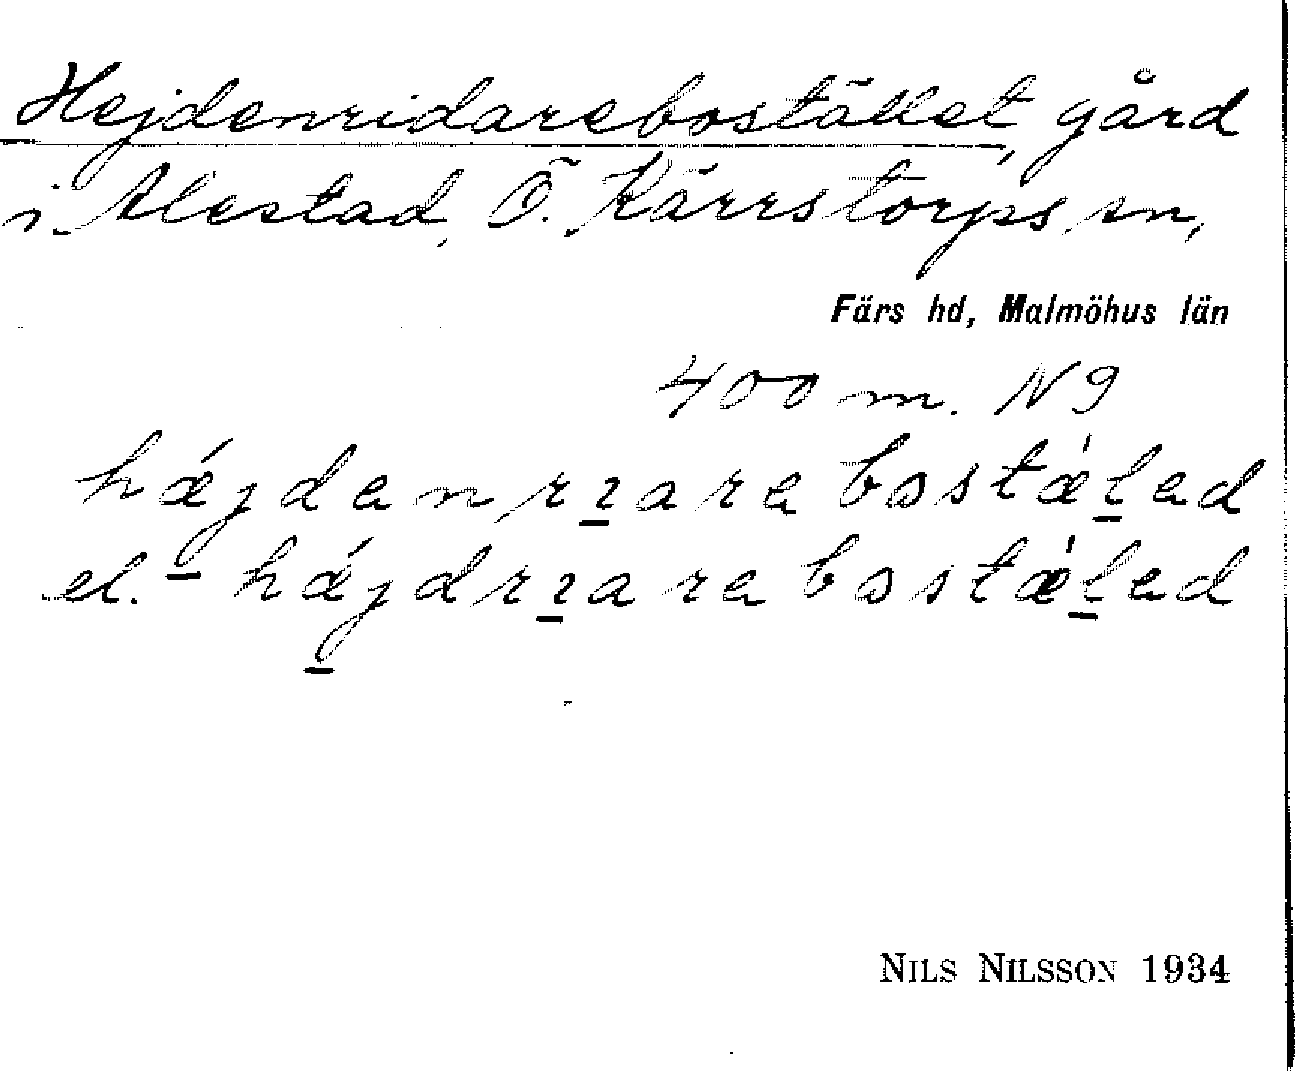 Hejdenridarebostället, gård
i Alestad, Ö. Kärrstorps sn,
Färs hd, Malmöhus län
400 m. N 9
hǽjdenrɪ̱arebostǽḻed
el. hǽjdrɪ̱arebostǽḻed
NILS NILSSON 1934